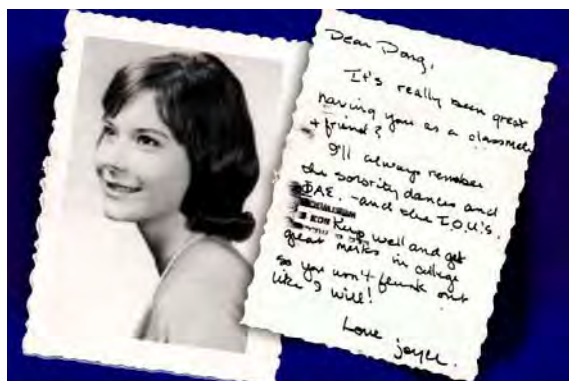 Dear Doug,
It's really been great
having you as a classmate
+ friend?
I'll always remember
the sorority dances and
ΦAE. -and the I.O.U's.
Keep well and get
great marks in college
so you won't flunk out
like I will!
Love Joyce.